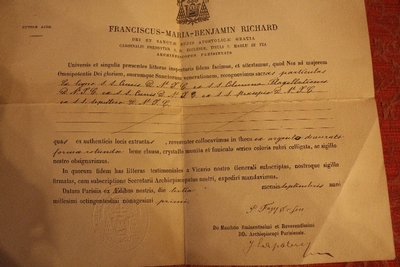 FRANCISCUS-MARIA-BENJAMIN RICHARD
DEI ET SANCTAE SEDIS APOSTOLICAE GRATIA
ARCHIEPISCOPUS PARISIENSIS
Universis et singulis praesentes litteras inspecturis fidem facimus, et attestamur, quod Nos ad majorem
Omnipotentis Dei gloriam, suorumque Sanctorum venerationem, recognovimus sacras particulas
Ex ligno S. S. Crucis D. N. J. C. ex S. S. Columna Flagellationis
D. N. J. C. ex S. S. D. N. J. C. ex S. S. praesepio D. N. J. C.
ex S. S. sepulcro D. N. J. C.
quas ex authenticis locis extractas, reverenter collocavimus in theca ex argento
forma rotunda bene clausa, crystallo munita et funiculo serico coloris rubri colligata, ac sigillo
nostro obsignavimus.
In quorum fidem has litteras testimoniales a Vicario nostro Generali subscriptas, nostroque sigillo
firmatas, cum subscriptione Secretarii Archiepiscopatus nostri, expediri mandavimus.
Datum Parisiis ex Aedibus nostris, die tertia mensis septembris anno
millesimi octingentesimi nonagesimi primi
De Mandato Eminentissimi et Reverendissimi
DD. Archiepiscopi Parisiensis,